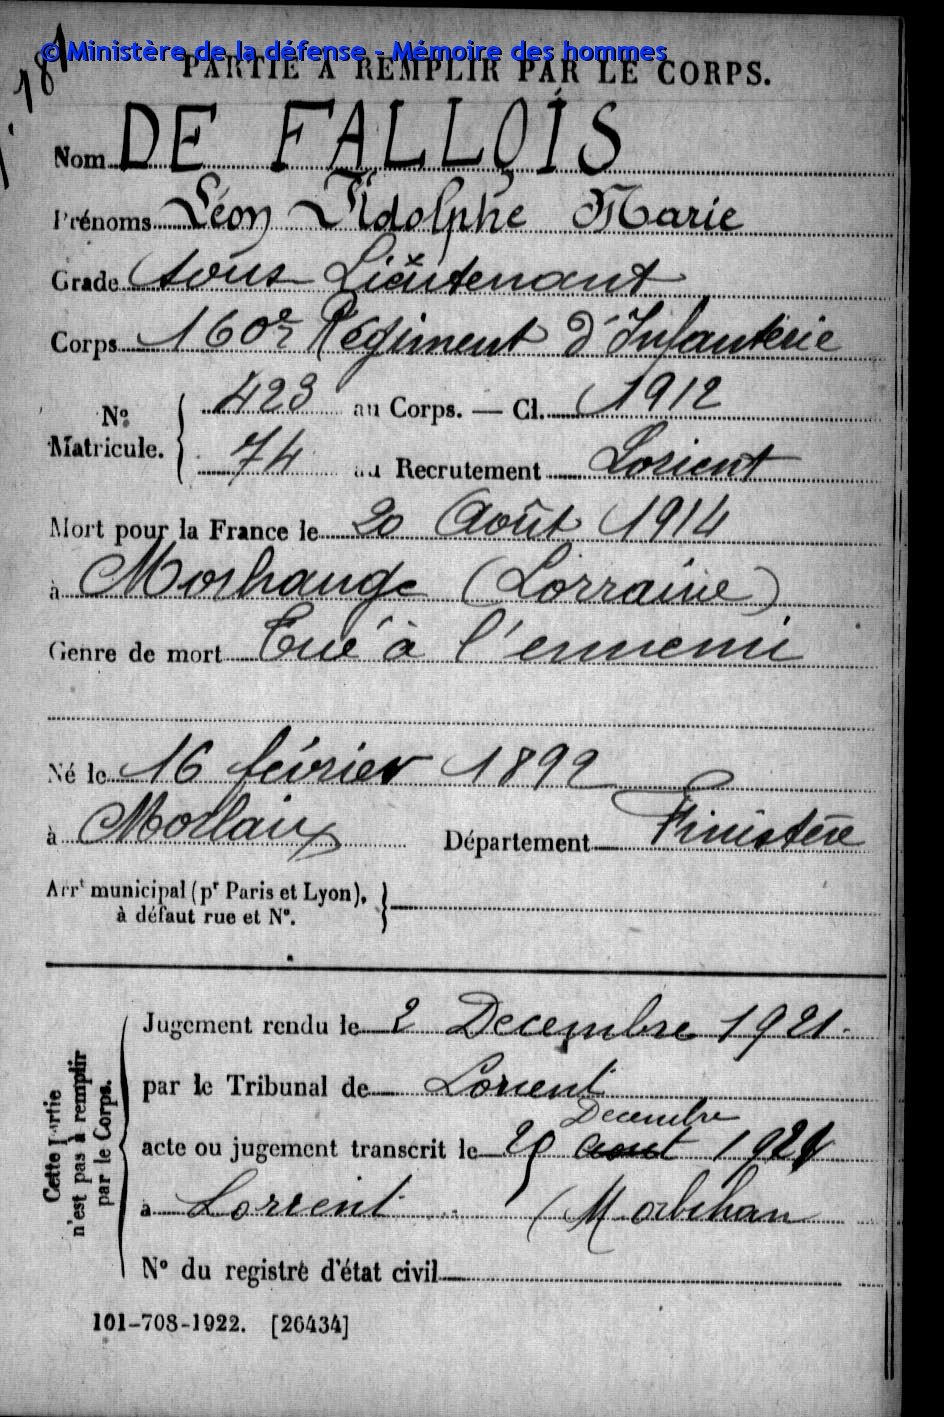 © Ministère de la défense - Mémoire des hommes
PARTIE A REMPLIR PAR LE CORPS.
Nom DE FALLOIS
Prénoms Léon Adolphe Marie
Grade Sous Lieutenant
Corps 160e Régiment d'Infanterie
No Matricule.
423 au Corps. — Cl. 1912
74 au Recrutement Lorient
Mort pour la France le 20 Août 1914
à Morhange (Lorraine)
Genre de mort Tué à l'ennemi
Né le 16 février 1892
à Morlaix Département Finistère
Arrt municipal (pr Paris et Lyon),
à défaut rue et N°.
Cette Partie
n'est pas à remplir
par le Corps.
Jugement rendu le 2 Decembre 1921.
par le Tribunal de Lorient
Decembre
acte ou jugement transcrit le 29 aout 1921
à Lorient (Morbihan
N° du registre d'état civil
101-708-1922. [26434]